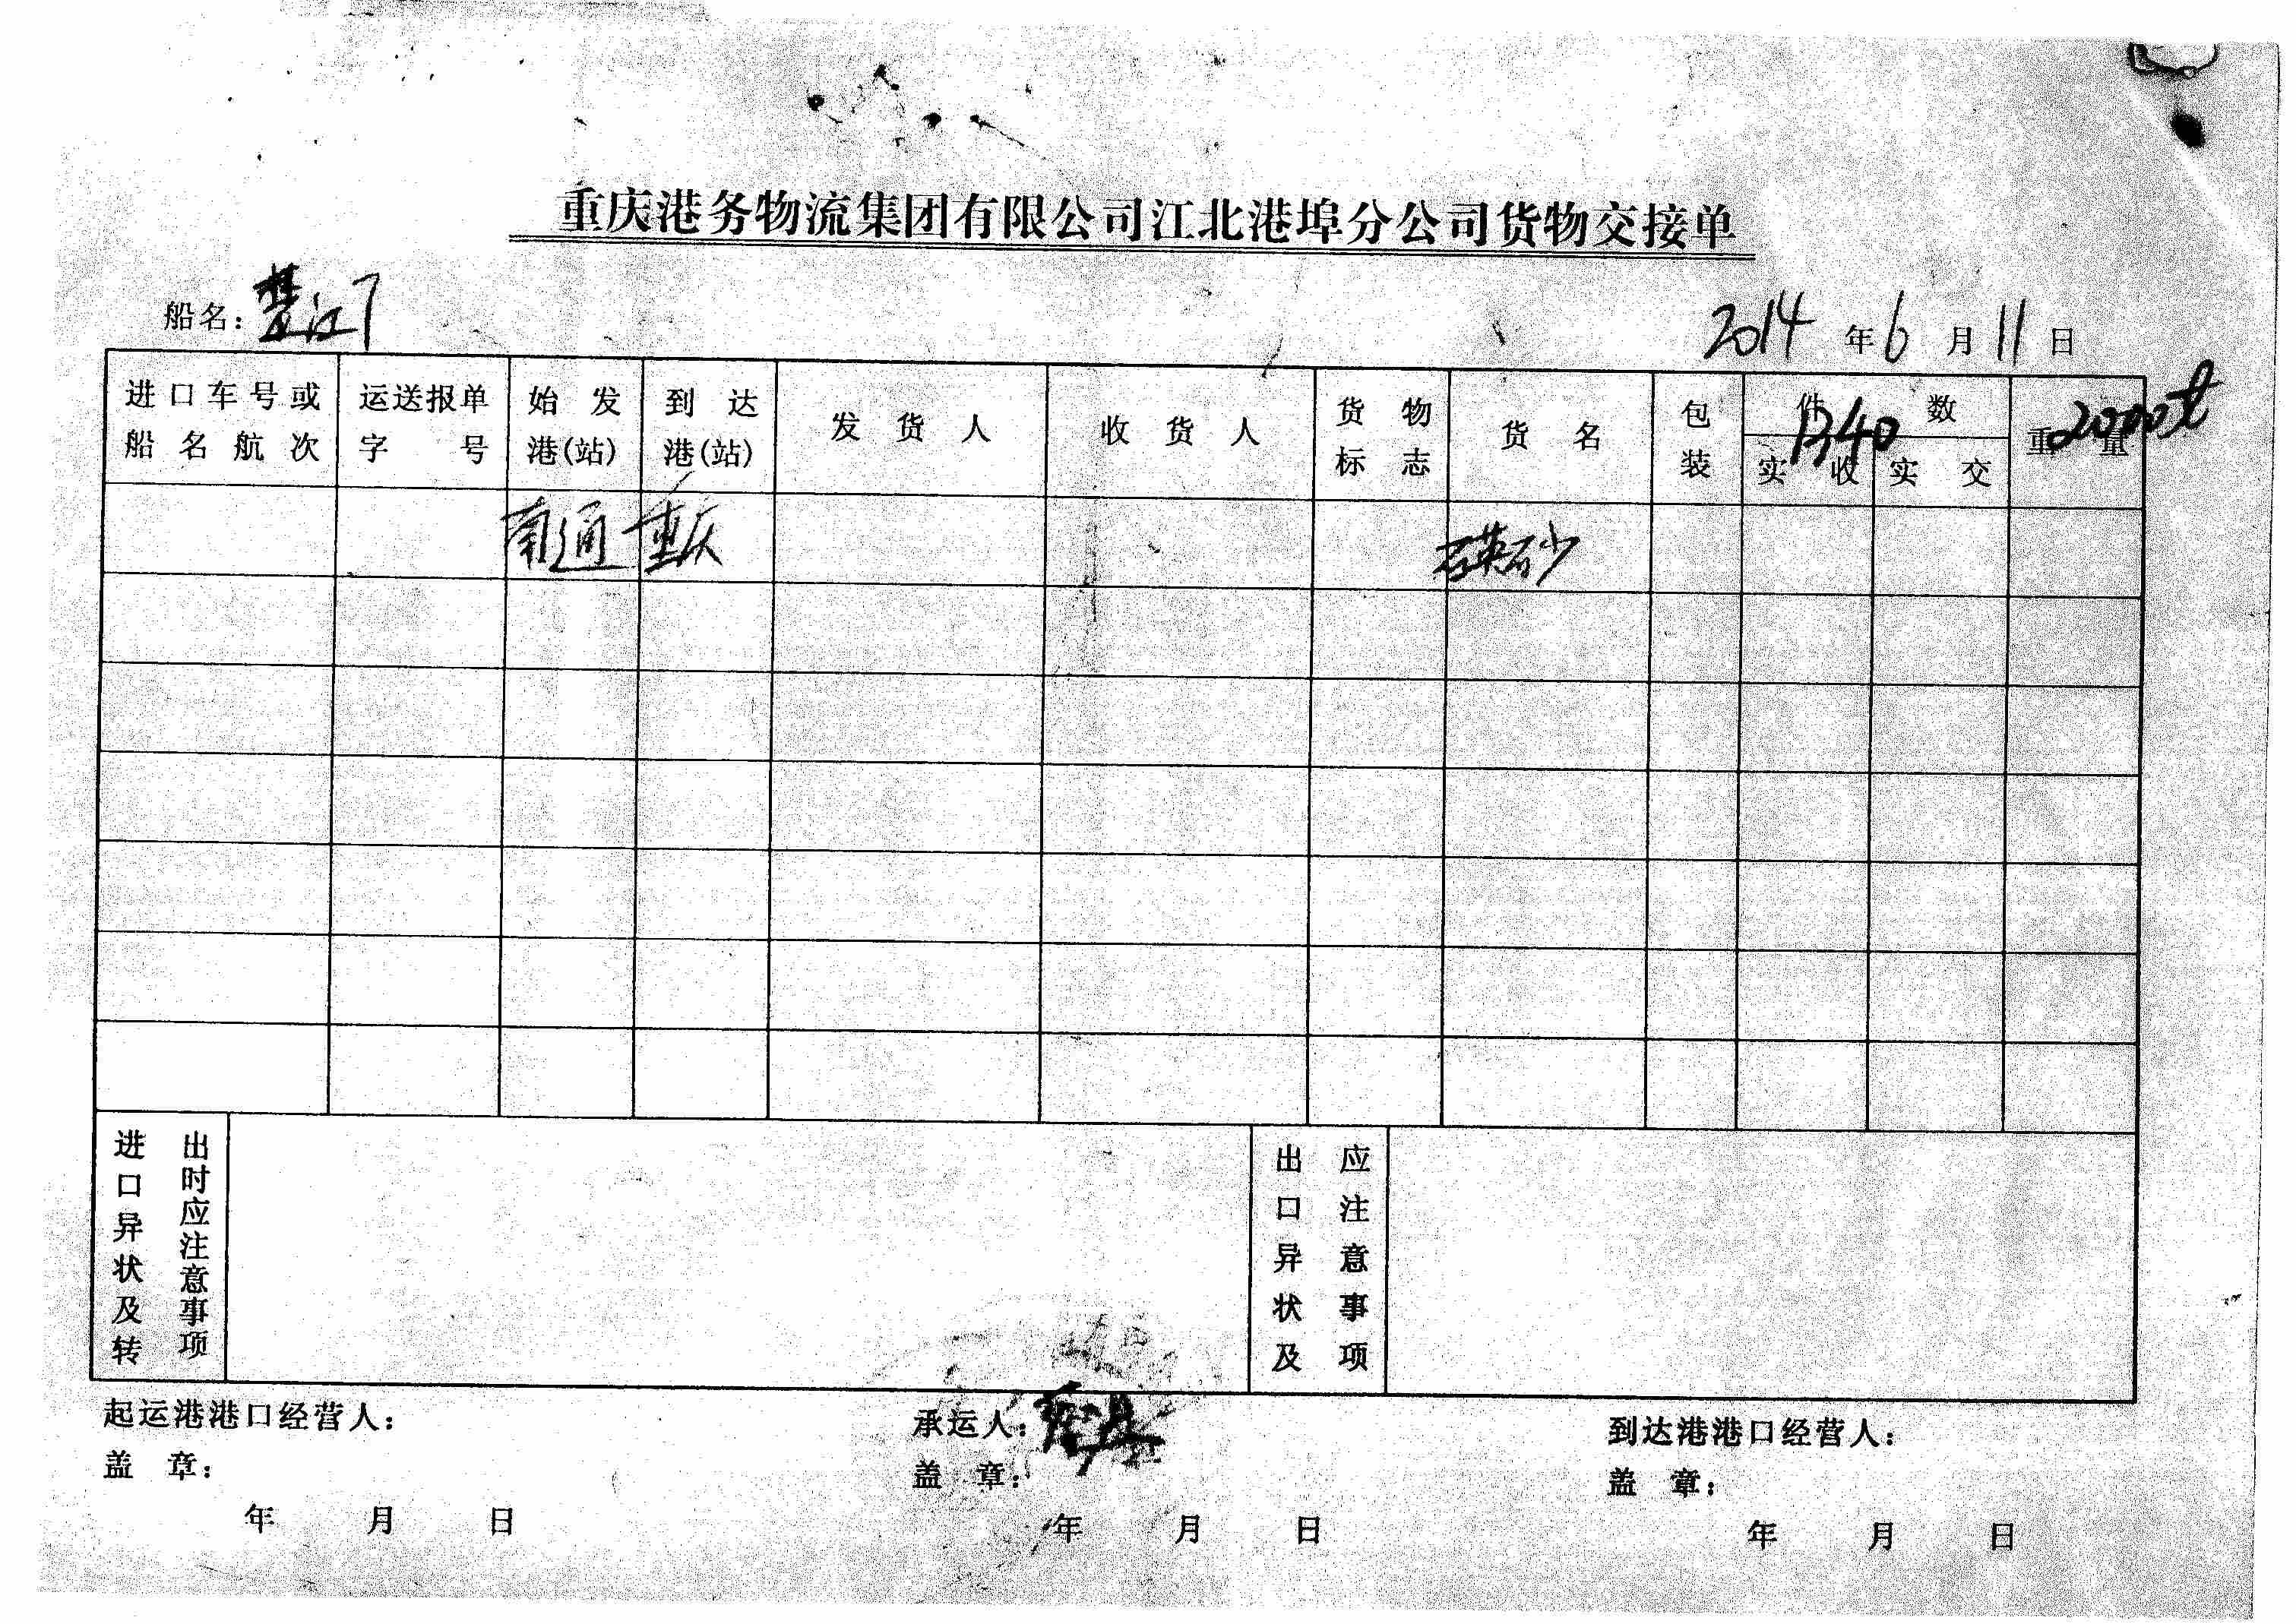 重庆港务物流集团有限公司江北港埠分公司货物交接单
船名：楚江7
2014年6月11日
进口车号或船名航次 运送报单字号 始发港(站) 到达港(站) 发货人 收货人 货物标志 货名 包装 件数 实收 实交 重量
1340 2000t
南通 重庆 石英砂
进口异状及转出时应注意事项
出口异状及应注意事项
起运港港口经营人： 承运人： 到达港港口经营人：
盖 章： 盖 章： 盖 章：
年 月 日 年 月 日 年 月 日